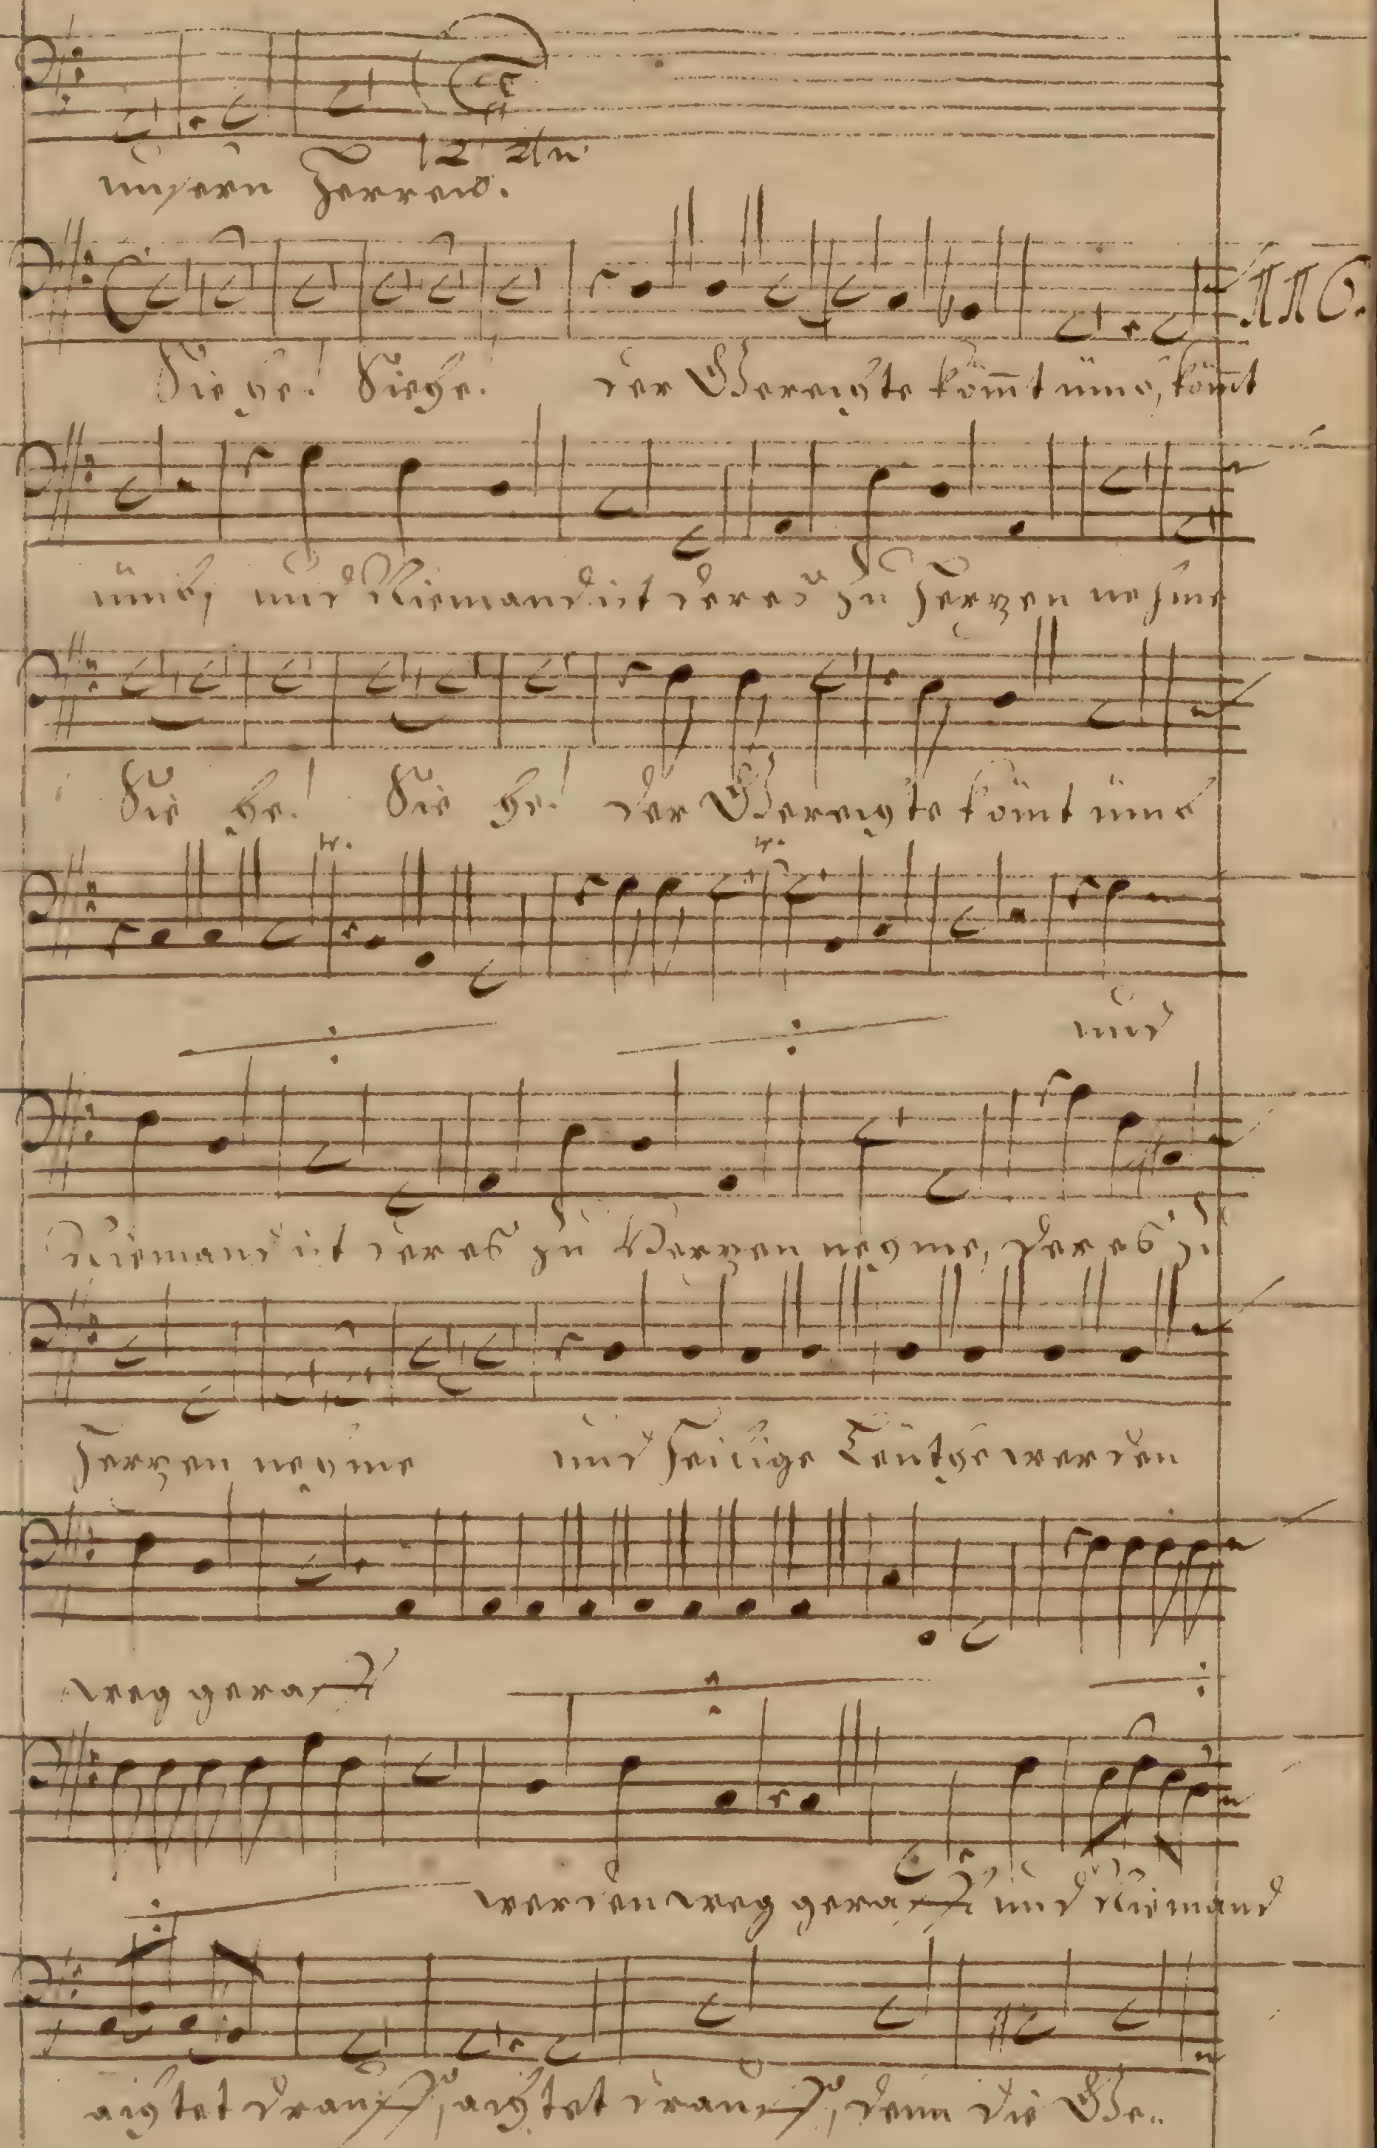 unsern Herren.
116.
Siehe! Siehe! der Gerechte kom̄t ümb, kom̄t
ümb, und Niemand ist der es zu Herzen nehme
Siehe! Siehe! der Gerechte kom̄t ümb
tr. tr.
und
Niemand ist der es zu Herzen nehme, der es zu
Herzen nehme und heilige Leuthe werden
weg gerafft
werden weg gerafft und Niemand
achtet drauff, achtet drauff, denn die Ge..